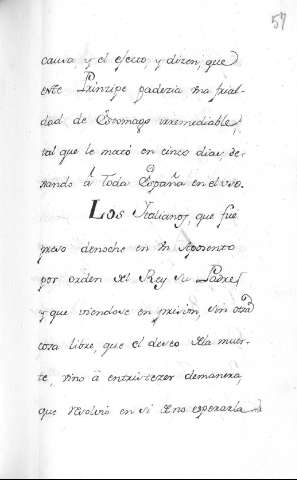 57
causa, y el efecto, y dizen, que
este Prinzipe padezia una frial-
dad de Estomago irremediable,
tal que le mató en cinco dias, de-
xando á Toda España en el uso.
Los Italianos, que fue
preso denoche en un Aposento
por orden del Rey su Padre,
y que viendose en prision, sin otra
cosa libre, que el deseo dla muer-
te, vino á entristezer demanera,
que resolvió en si d no esperarla